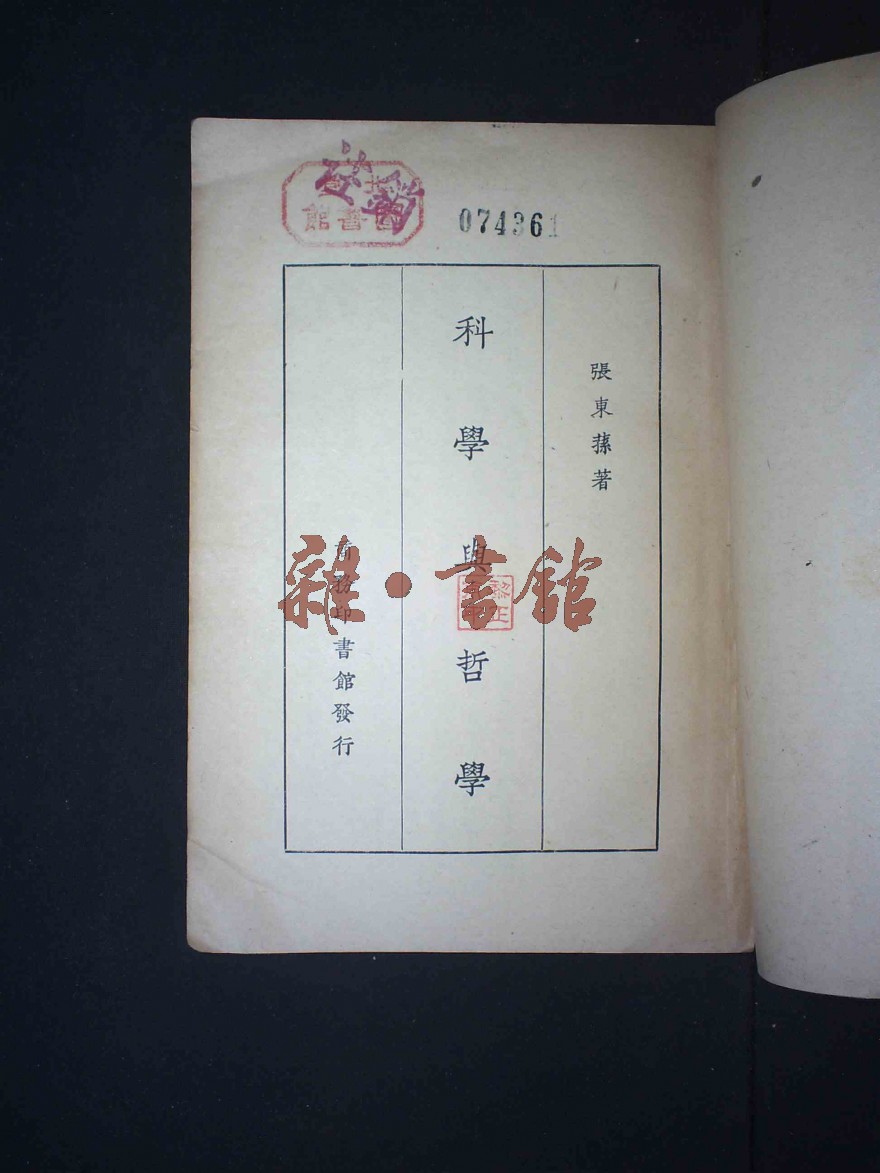 074361
張東蓀著
科學與哲學
商務印書館發行
雜·書館